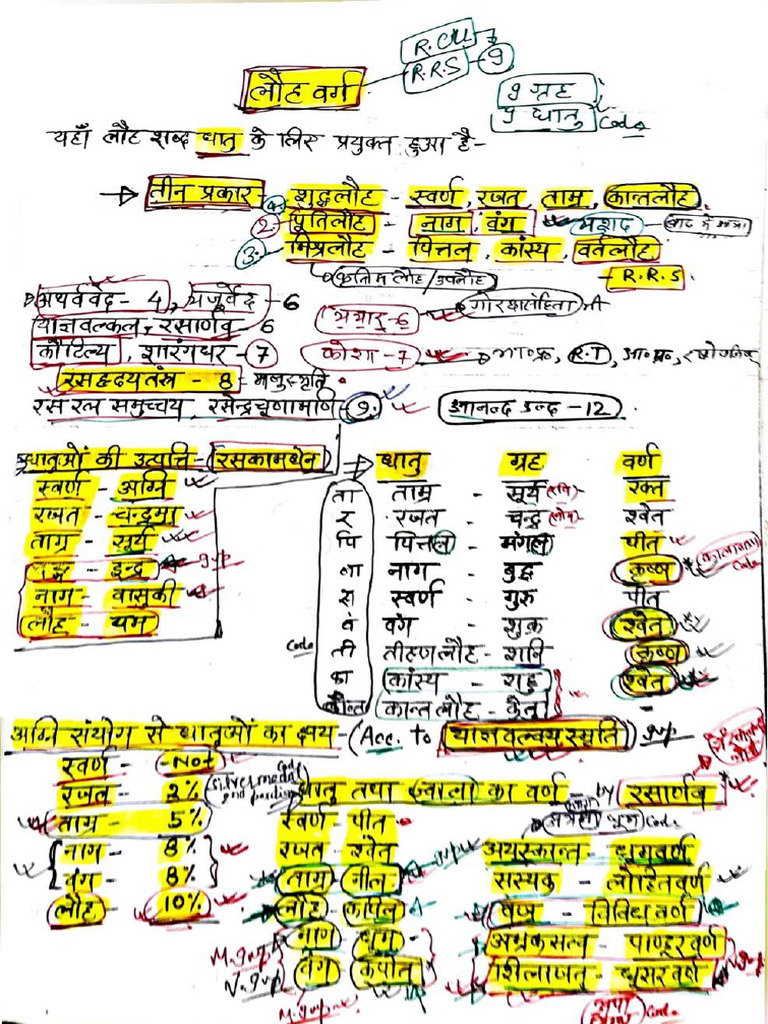 R.Cu
लौह वर्ग R.R.S - 9
9 ग्रह
9 धातु Code
यहाँ लौह शब्द धातु के लिए प्रयुक्त हुआ है-
→ तीन प्रकार - 1. शुद्धलौह - स्वर्ण, रजत, ताम्र, कान्तलौह
2. पूतिलौह - नाग, वंग यशद
3. मिश्रलौह - पित्तल, कांस्य, वर्तलौह
कृत्रिम लौह/उपलौह - R.R.S.
अथर्ववेद - 4, यजुर्वेद - 6
याज्ञवल्कल, रसार्णव - 6
कौटिल्य, शारंगधर - 7 कोशा - 7 भा०प्र०, R.T, आ०प्र०,
रसहृदयतंत्र - 8 - मनुस्मृति
रस रत्न समुच्चय, रसेन्द्रचूणामणि - 9. आनन्द कन्द - 12
धातुओं की उत्पत्ति - रसकामधेनु
स्वर्ण - अग्नि
रजत - चन्द्रमा
ताम्र - सूर्य
वङ्ग - इन्द्र Imp
नाग - वासुकी
लौह - यम
→ धातु ग्रह वर्ण
ता ताम्र - सूर्य (रवि) रक्त
र रजत - चन्द्र (सोम) श्वेत
पि पित्तल - मंगल पीत
ला नाग - बुद्ध कृष्ण Code
स स्वर्ण - गुरु पीत
वं वंग - शुक्र श्वेत
Code ती तीक्ष्णलौह - शनि कृष्ण
का कांस्य - राहु श्वेत
कान्त कान्तलौह - केतु -
अग्नि संयोग से धातुओं का क्षय - (Acc. to याज्ञवल्क्य स्मृति) Imp
स्वर्ण - Not
रजत - 2% Code
ताम्र - 5%
नाग - 8%
वंग - 8%
लौह - 10%
धातु तथा ज्वाला का वर्ण by रसार्णव
स्वर्ण - पीत Code
रजत श्वेत
ताम्र - नील
लौह - कपिल
नाग धूम्र
वंग कपोत
M.Imp
N.Imp
M.Imp
अयस्कान्त - धूम्रवर्ण
सस्यक - लोहितवर्ण
वज्र - विविध वर्ण
अभ्रकसत्व - पाण्डुरवर्ण
शिलाजतु - धूसरवर्ण
Code